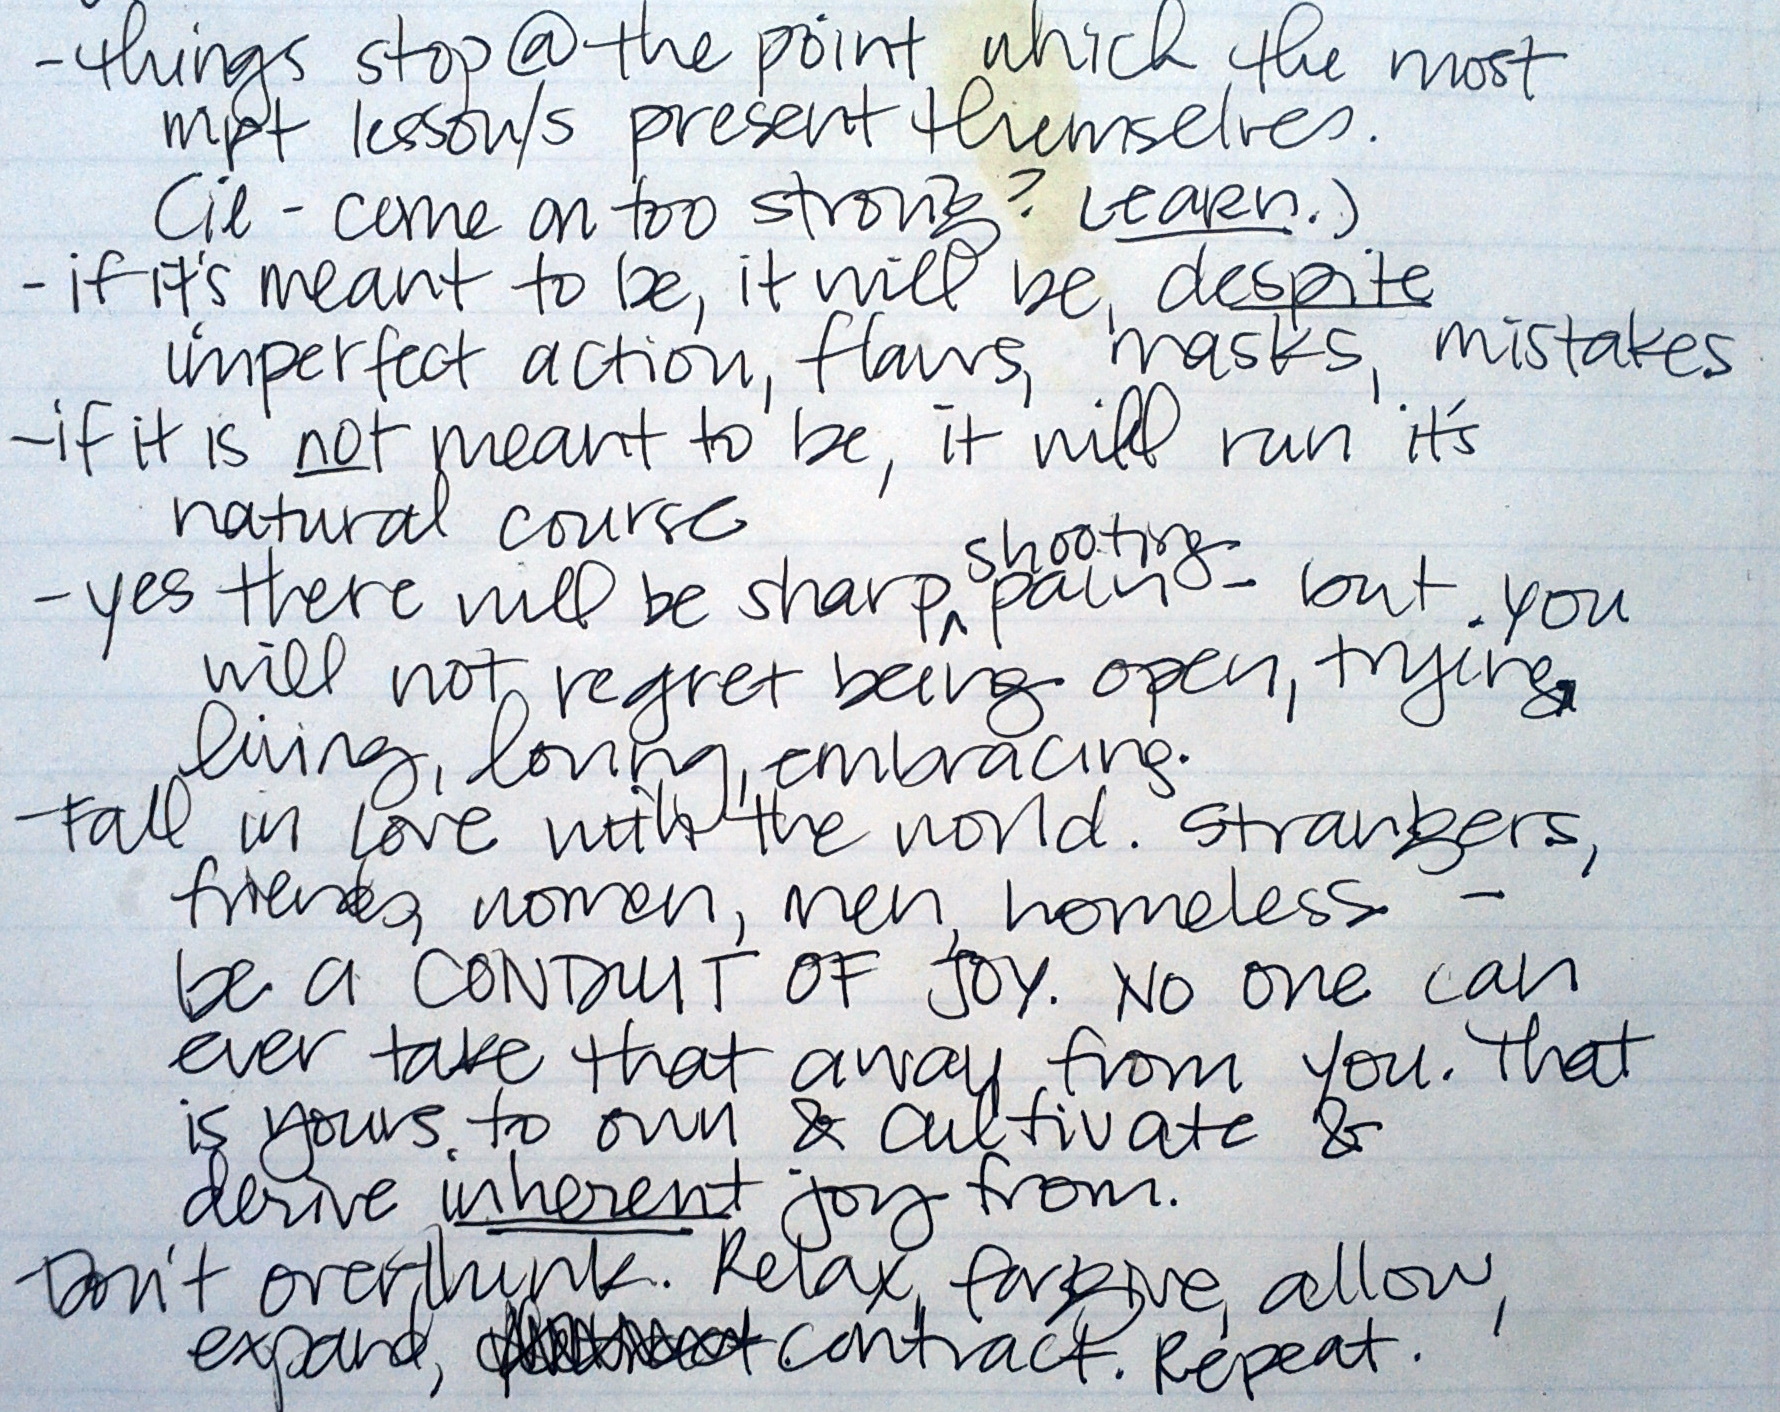 - things stop @ the point which the most
mpt lesson/s present themselves.
(ie - come on too strong? LEARN.)
- if it's meant to be, it will be, despite
imperfect action, flaws, masks, mistakes
- if it is not meant to be, it will run it's
natural course
- yes there will be sharp, shooting pain - but you
will not regret being open, trying,
living, loving, embracing.
- Fall in love with the world. Strangers,
friends, women, men, homeless -
be a CONDUIT OF JOY. No one can
ever take that away from you. That
is yours to own & cultivate &
derive inherent joy from.
- Don't overthink. Relax, forgive, allow,
expand, contract. Repeat.